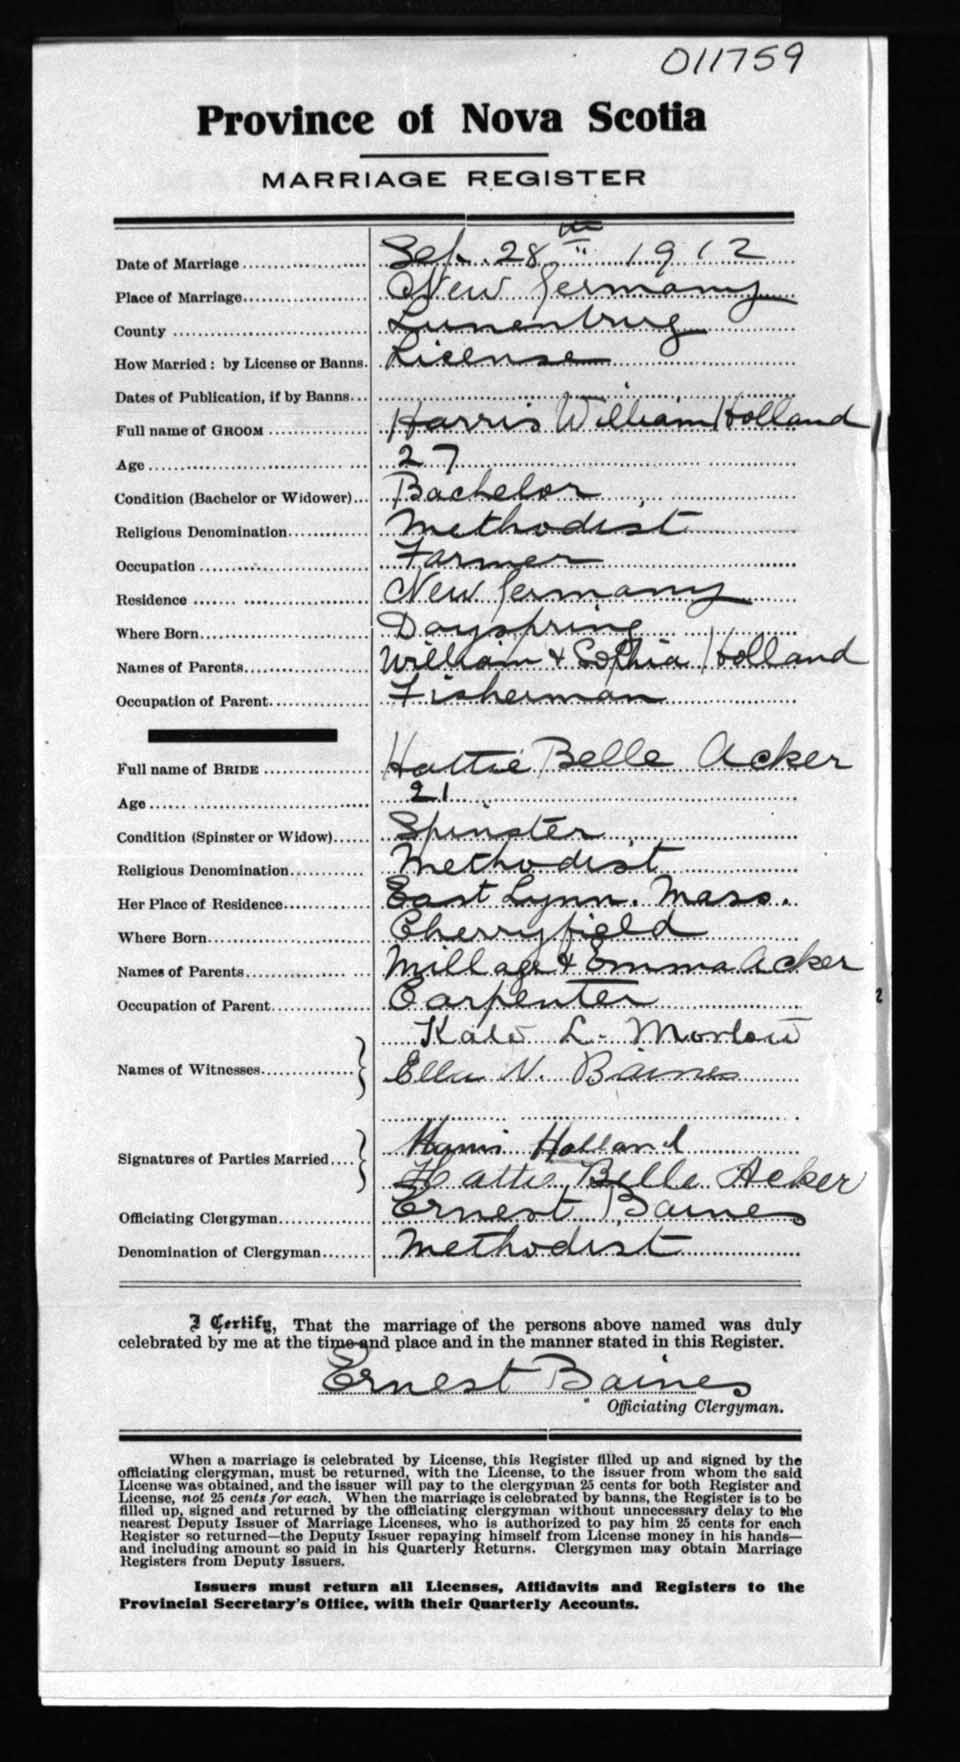 011759
Province of Nova Scotia
MARRIAGE REGISTER
Date of Marriage Sep. 28th 1912
Place of Marriage New Germany
County Lunenburg
How Married : by License or Banns. License
Dates of Publication, if by Banns
Full name of GROOM Harris William Holland
Age 27
Condition (Bachelor or Widower) Bachelor
Religious Denomination Methodist
Occupation Farmer
Residence New Germany
Where Born Dayspring
Names of Parents William & Sophia Holland
Occupation of Parent Fisherman
Full name of BRIDE Hattie Belle Acker
Age 21
Condition (Spinster or Widow) Spinster
Religious Denomination Methodist
Her Place of Residence East Lynn. Mass.
Where Born Cherryfield
Names of Parents Millage & Emma Acker
Occupation of Parent Carpenter
L.
Names of Witnesses Ella V. Baines
Harris Holland
Signatures of Parties Married
Hattie Belle Acker
Officiating Clergyman Ernest Baines
Denomination of Clergyman Methodist
I Certify, That the marriage of the persons above named was duly
celebrated by me at the time and place and in the manner stated in this Register.
Ernest Baines
Officiating Clergyman.
When a marriage is celebrated by License, this Register filled up and signed by the
officiating clergyman, must be returned, with the License, to the issuer from whom the said
License was obtained, and the issuer will pay to the clergyman 25 cents for both Register and
License, not 25 cents for each. When the marriage is celebrated by banns, the Register is to be
filled up, signed and returned by the officiating clergyman without unnecessary delay to the
nearest Deputy Issuer of Marriage Licenses, who is authorized to pay him 25 cents for each
Register so returned—the Deputy Issuer repaying himself from License money in his hands—
and including amount so paid in his Quarterly Returns. Clergymen may obtain Marriage
Registers from Deputy Issuers.
Issuers must return all Licenses, Affidavits and Registers to the
Provincial Secretary's Office, with their Quarterly Accounts.